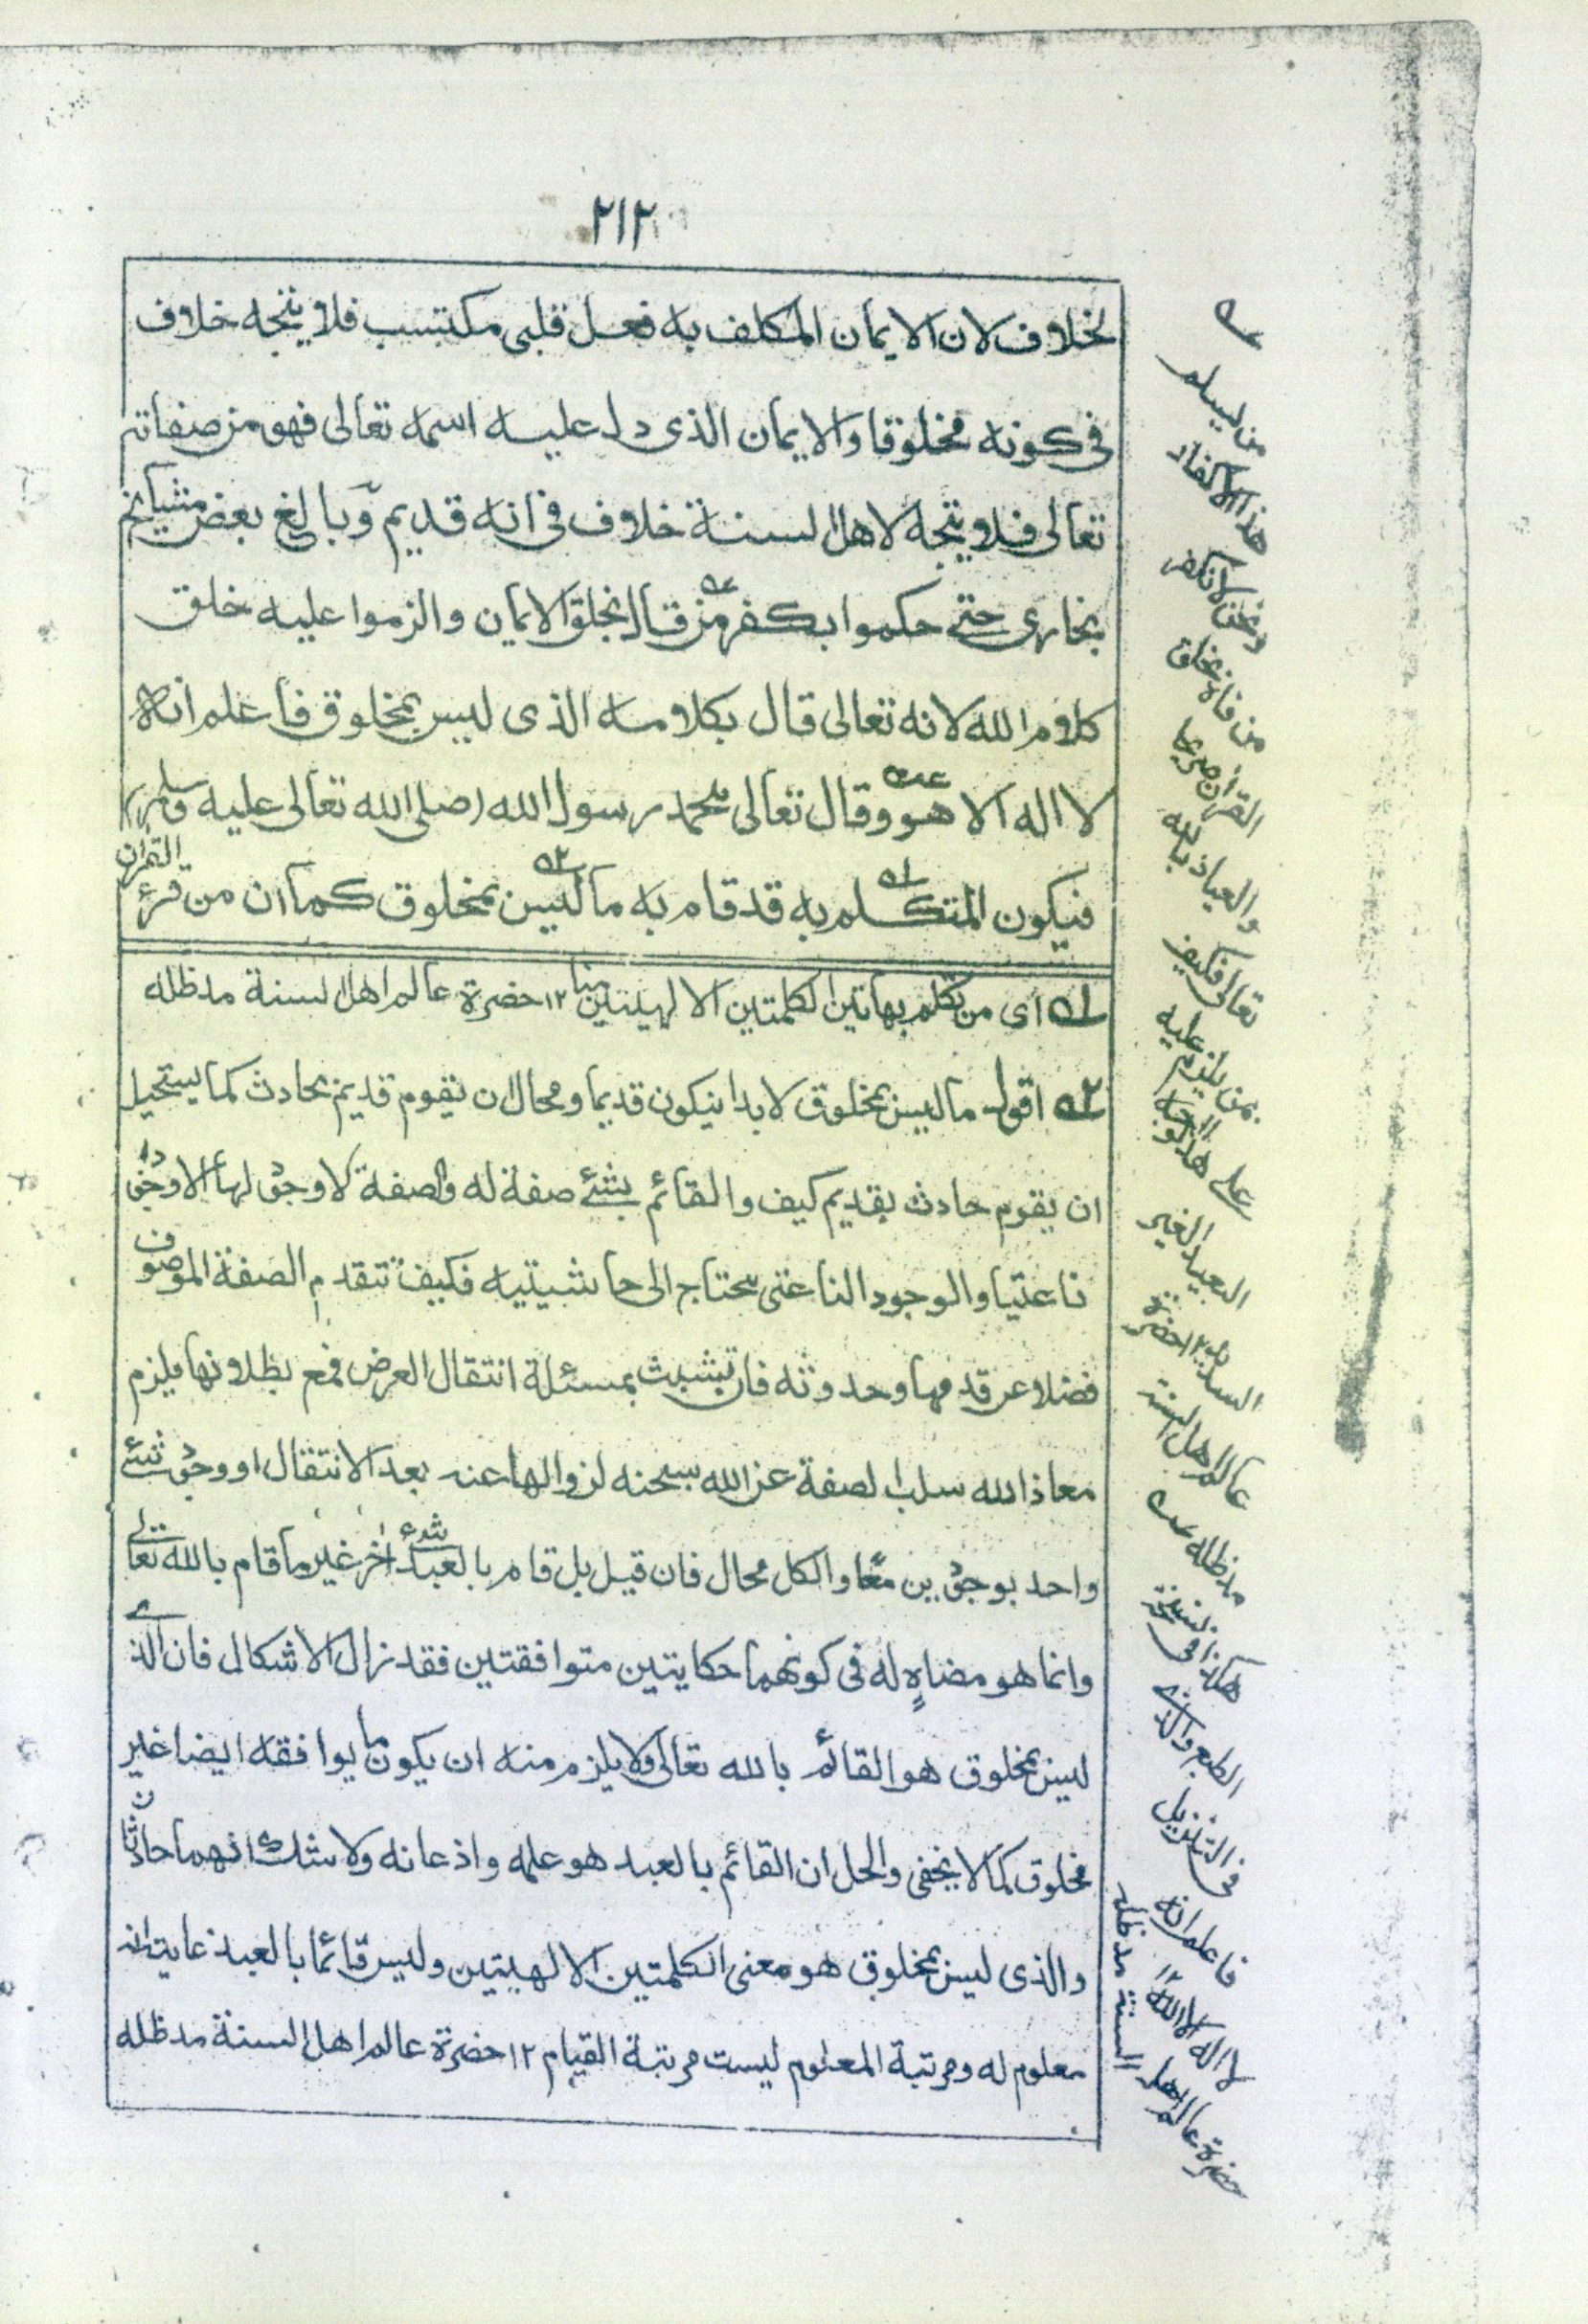 ٢١٢
لخلاف لان الايمان المكلف به فعل قلبى مكتسب فلا يتجه خلاف
فى كونه مخلوقا والايمان الذى دل عليه اسمه تعالى فهو من صفاته
تعالى فلا يتجه لاهل السنة خلاف فى انه قديم وبالغ بعض مشايخ
بخارى حتى حكموا بكفر من قال بخلق الايمان والزموا عليه خلق
كلام الله لانه تعالى قال بكلامه الذى ليس بمخلوق فاعلم انه
لا اله الا هو وقال تعالى محمد رسول الله (صلى الله تعالى عليه وسلم)
فيكون المتكلم به قد قام به ما ليس بمخلوق كما ان من قرئ القرآن
١ه اى من تكلم بهاتين الكلمتين الالهيتين منا ١٢ حضرة عالم اهل السنة مدظله
٢ه اقول ما ليس بمخلوق لا بد ان يكون قديما ومحال ان يقوم قديم بحادث كما يستحيل
ان يقوم حادث بقديم كيف والقائم بشئ صفة له والصفة لا وجود لها الا وجودا
ناعتيا والوجود الناعتى يحتاج الى حاشيتيه فكيف تتقدم الصفة الموصوف
فضلا عن قدمها وحدوثه فان تشبث بمسئلة انتقال العرض فمع بطلانها يلزم
معاذ الله سلب الصفة عن الله سبحنه لزوالها عنه بعد الانتقال او وجود شئ
واحد بوجودين معًا والكل محال فان قيل بل قام بالعبد شئ اخر غير ما قام بالله تعالى
وانما هو مضاهٍ له فى كونهما حكايتين متوافقتين فقد زال الاشكال فان الذى
ليس بمخلوق هو القائم بالله تعالى ولا يلزم منه ان يكون ما يوافقه ايضا غير
مخلوق كما لا يخفى والحل ان القائم بالعبد هو علمه واذعانه ولا شك انهما حادثان
والذى ليس بمخلوق هو معنى الكلمتين الالهيتين وليس قائما بالعبد غايته انه
معلوم له ومرتبة المعلوم ليست مرتبة القيام ١٢ حضرة عالم اهل السنة مدظله
عه
من يسلم
هذا الاكفار
ونحن لا نكفر
من فاه بخلق
القرآن صريحا
والعياذ بالله
تعالى فكيف
بمن يلزم عليه
على هذا الوجه
البعيد الغير
السديد ١٢ حضرة
عالم اهل السنة
مدظله عه
هكذا فى نسختى
الطبع والذى
فى التنزيل
فاعلم انه
لا اله الا الله ١٢
حضرة عالم اهل
السنة مدظله